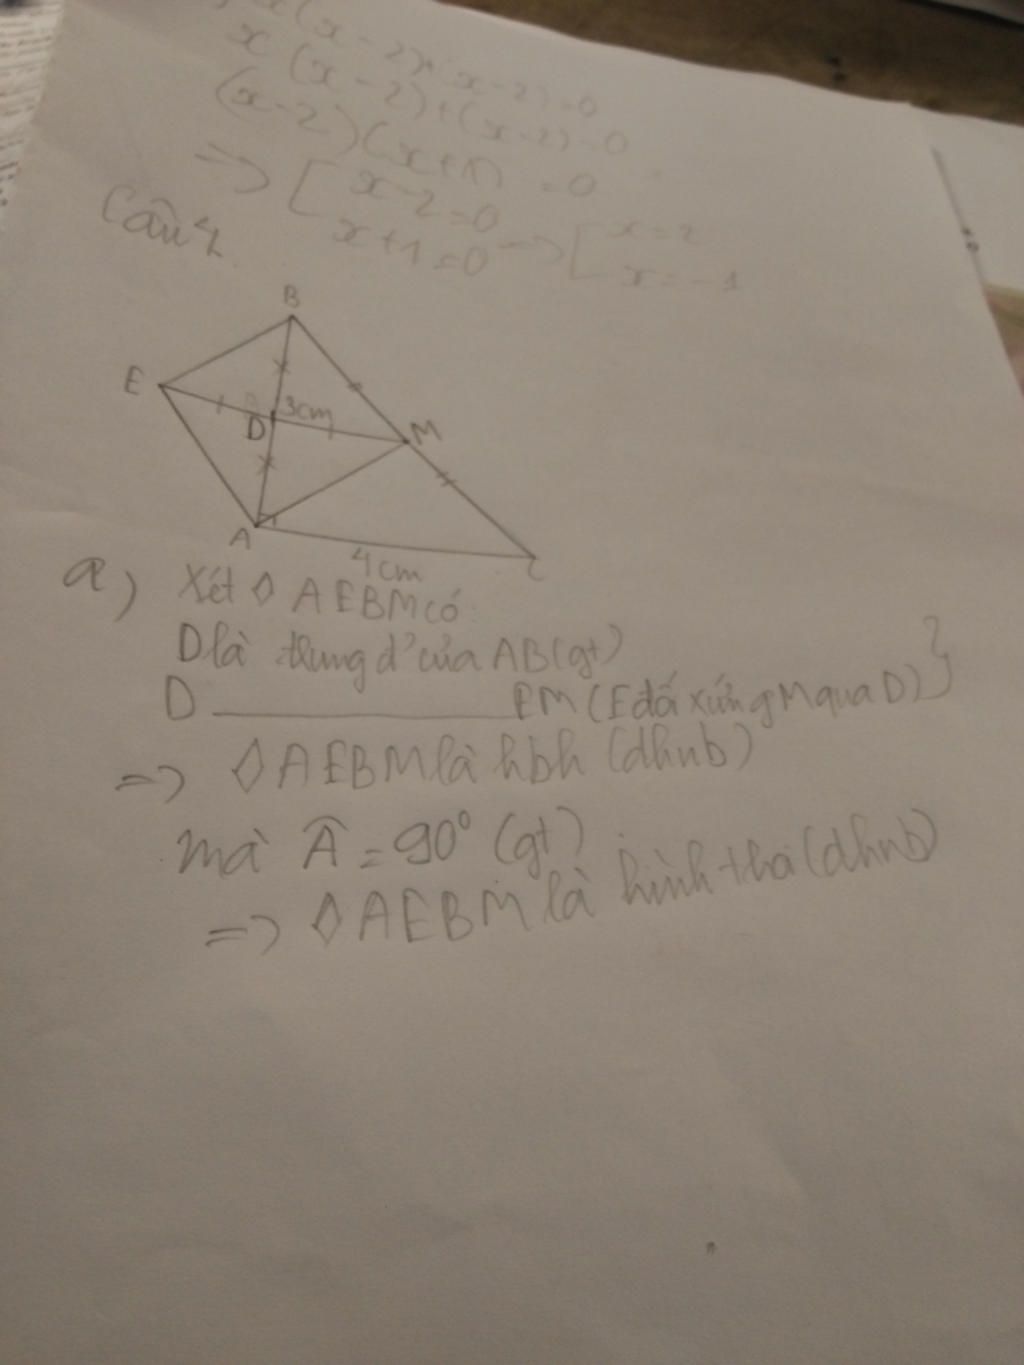 x(x-2)+(x-2)=0
x(x-2)+(x-2)=0
(x-2)(x+1)=0
=> [ x-2=0
x+1=0 => [ x=2
x=-1
Câu 4
B
E
D 3cm
M
A
4cm
C
a) Xét ◊ AEBM có:
D là trung đ' của AB(gt)
D ———— EM (E đối xứng M qua D) }
=> ◊ AEBM là hbh (dhnb)
mà Â = 90° (gt)
=> ◊ AEBM là hình thoi (dhnb)